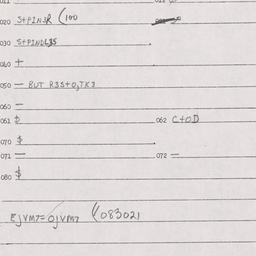 020 S+PINJR (100
030 S+PINDLJS
040 +
050 — BUT R3S+O,TK3
060 —
061 $ 062 C+OD
070 $
071 = 072 =
080 $
EJVM7=OJVM7 (083021